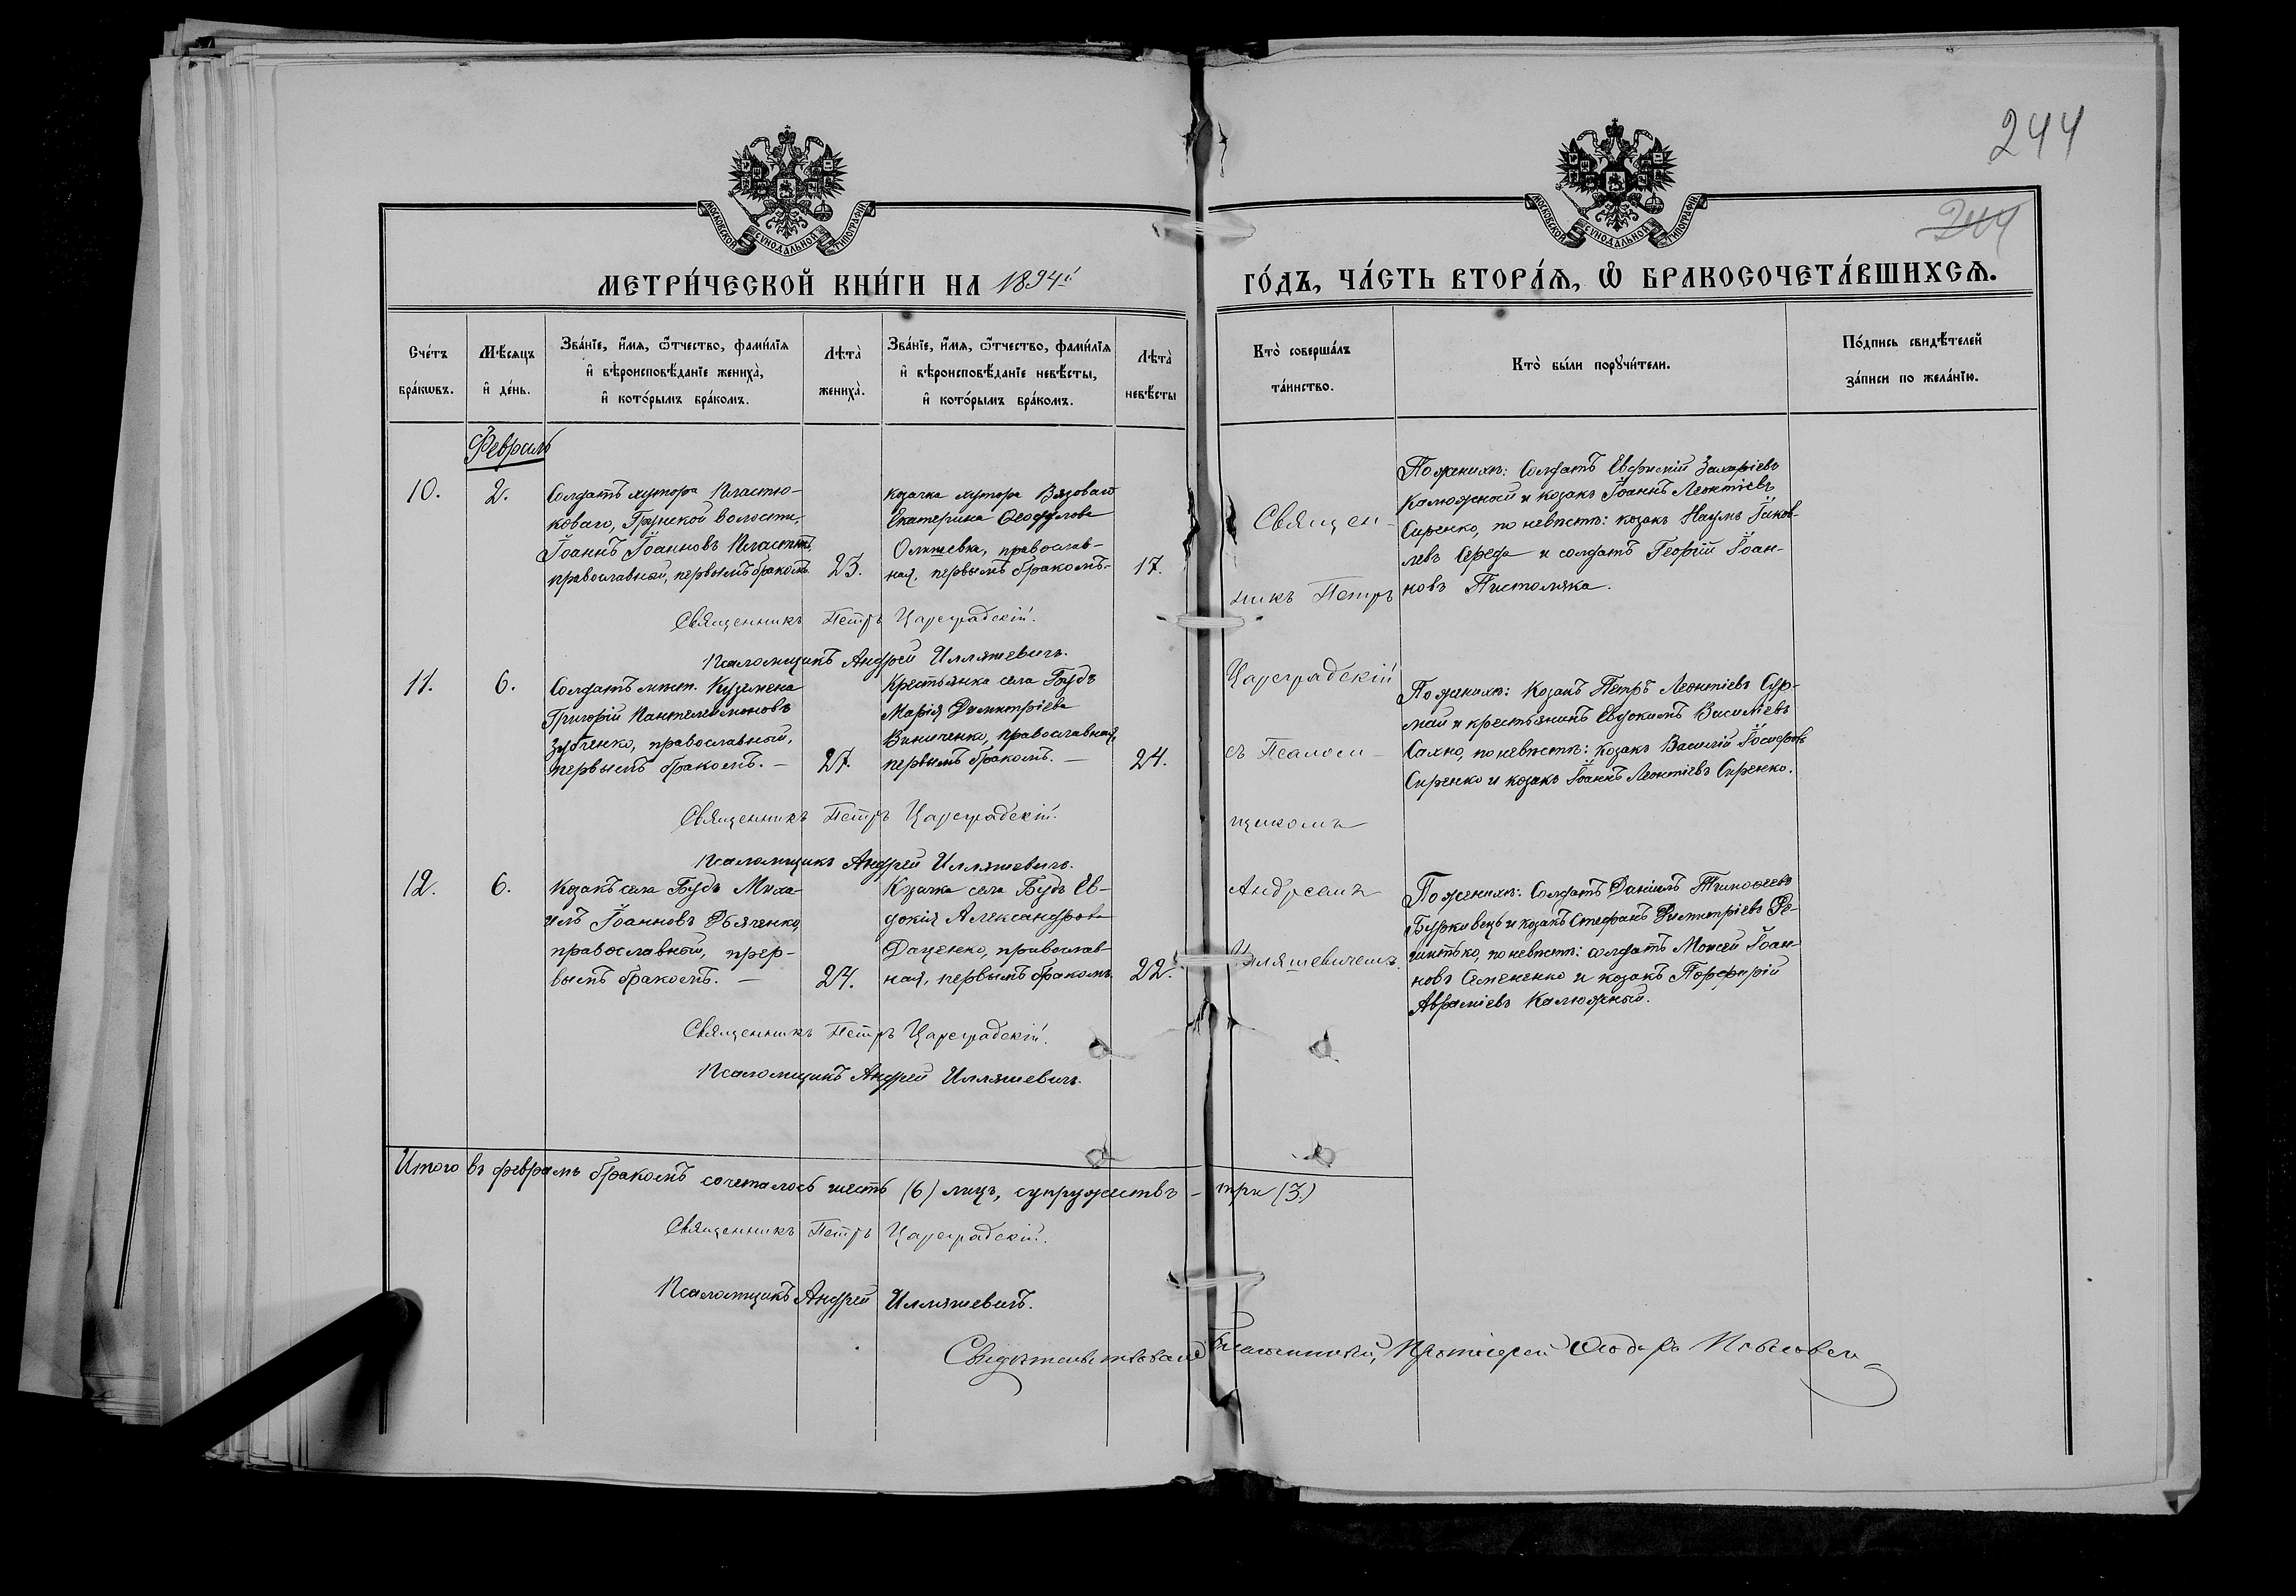 244
244
МОСКОВСКОЙ СУНОДАЛЬНОЙ ТИПОГРАФІИ
МОСКОВСКОЙ СУНОДАЛЬНОЙ ТИПОГРАФІИ
МЕТРИ́ЧЕСКОЙ КНИ́ГИ НА 1894й
ГО́ДЪ, ЧА́СТЬ ВТОРА́Я, Ѡ БРАКОСОЧЕТА́ВШИХСѦ.
Сче́тъ бра́кѡвъ.
Мѣ́сѧцъ и҆ де́нь.
Зва́нїе, и҆́мѧ, ѻ҆́тчество, фами́лїѧ
и҆ вѣроисповѣ́данїе жениха̀,
и҆ кото́рымъ бра́комъ.
Лѣта̀ жениха̀.
Зва́нїе, и҆́мѧ, ѻ҆́тчество, фами́лїѧ
и҆ вѣроисповѣ́данїе невѣ́сты,
и҆ кото́рымъ бра́комъ.
Лѣта̀ невѣ́сты
Кто̀ соверша́лъ
та́инство.
Кто̀ бы́ли порꙋчи́тели.
По́дпись свидѣ́телей
за́писи по жела́нїю.
Февраль
10.
2.
Солдатъ хутора Пластю-
коваго, Грунской волости,
Іоаннъ Іоанновъ
православный, первымъ бракомъ
23.
Козачка хутора Вязоваго
Екатерина Ѳеодулова
православ-
ная, первымъ бракомъ-
17.
По женихѣ: Солдатъ Евфимій Захаріевъ
Калюжный и козакъ Іоаннъ Леонтіевъ
Сиренко, по невѣстѣ: козакъ Наумъ Іаков-
левъ Середа и солдатъ Георгій Іоан-
новъ Пистоляка.
Священникъ Петръ Цареградскій.
Псаломщикъ Андрей Илляшевичъ.
11.
6.
Солдатъ мѣст. Куземена
Григорій Пантелеимоновъ
Зубченко, православный,
первымъ бракомъ. —
27.
Крестьянка села Будъ
Марія Димитріева
Виниченко, православная,
первымъ бракомъ. —
24.
По женихѣ: Козакъ Петръ Леонтіевъ Сур-
май и крестьянинъ Евдокимъ Василіевъ
Сахно, по невѣстѣ: козакъ Василій Іосифовъ
Сиренко и козакъ Іоаннъ Леонтіевъ Сиренко.
Священникъ Петръ Цареградскій.
Псаломщикъ Андрей Илляшевичъ.
12.
6.
Козакъ села Будъ Миха-
илъ Іоанновъ Дьяченко,
православный, прер-
вымъ бракомъ. —
24.
Козачка села Будъ Ев-
докія Александрова
Даценко, православ-
ная, первымъ бракомъ
22.
По женихѣ: Солдатъ Даніилъ Тимоѳеевъ
Бурковецъ и козакъ Стефанъ Димитріевъ Ре-
по невѣстѣ: солдатъ Моисей Іоан-
новъ Семененко и козакъ Порфирій
Авраміевъ Калюжный.
Священникъ Петръ Цареградскій.
Псаломщикъ Андрей Илляшевичъ.
Священ-
никъ Петръ
Цареградскій
съ Псалом-
щикомъ
Андреемъ
Илляшевичемъ.
Итого въ февралѣ бракомъ сочеталось шесть (6) лицъ, супружествъ - три (3.)
Священникъ Петръ Цареградскій.
Псаломщикъ Андрей Илляшевичъ.
Свидѣтельствовалъ Благочинный, Протоіерей Ѳеодоръ